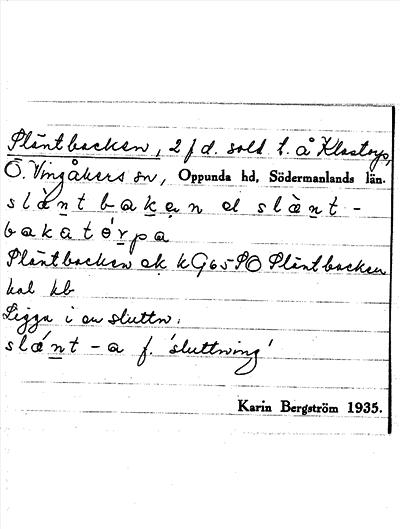 Släntbacken, 2 f d. sold. t. å Klastorp,
Ö. Vingåkers sn, Oppunda hd, Södermanlands län.
slánt bakan el slànt -
bakatórpa
Släntbacken ek kG65SO Släntbacken
kal kb
Ligga i en sluttn.
slánt - a f. 'sluttning'
Karin Bergström 1935.